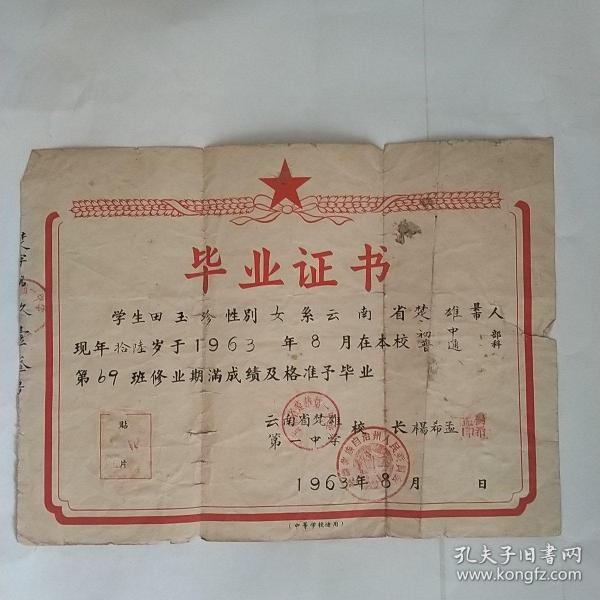 毕业证书
学生田玉珍性别女系云南省楚雄县市人
现年拾陆岁于1963年8月在本校初中普通部科
第69班修业期满成绩及格准予毕业
云南省楚雄
第一中学
校长杨希孟
贴
片
1963年8月 日
(中等学校适用)
孔夫子旧书网
www.kongfz.com